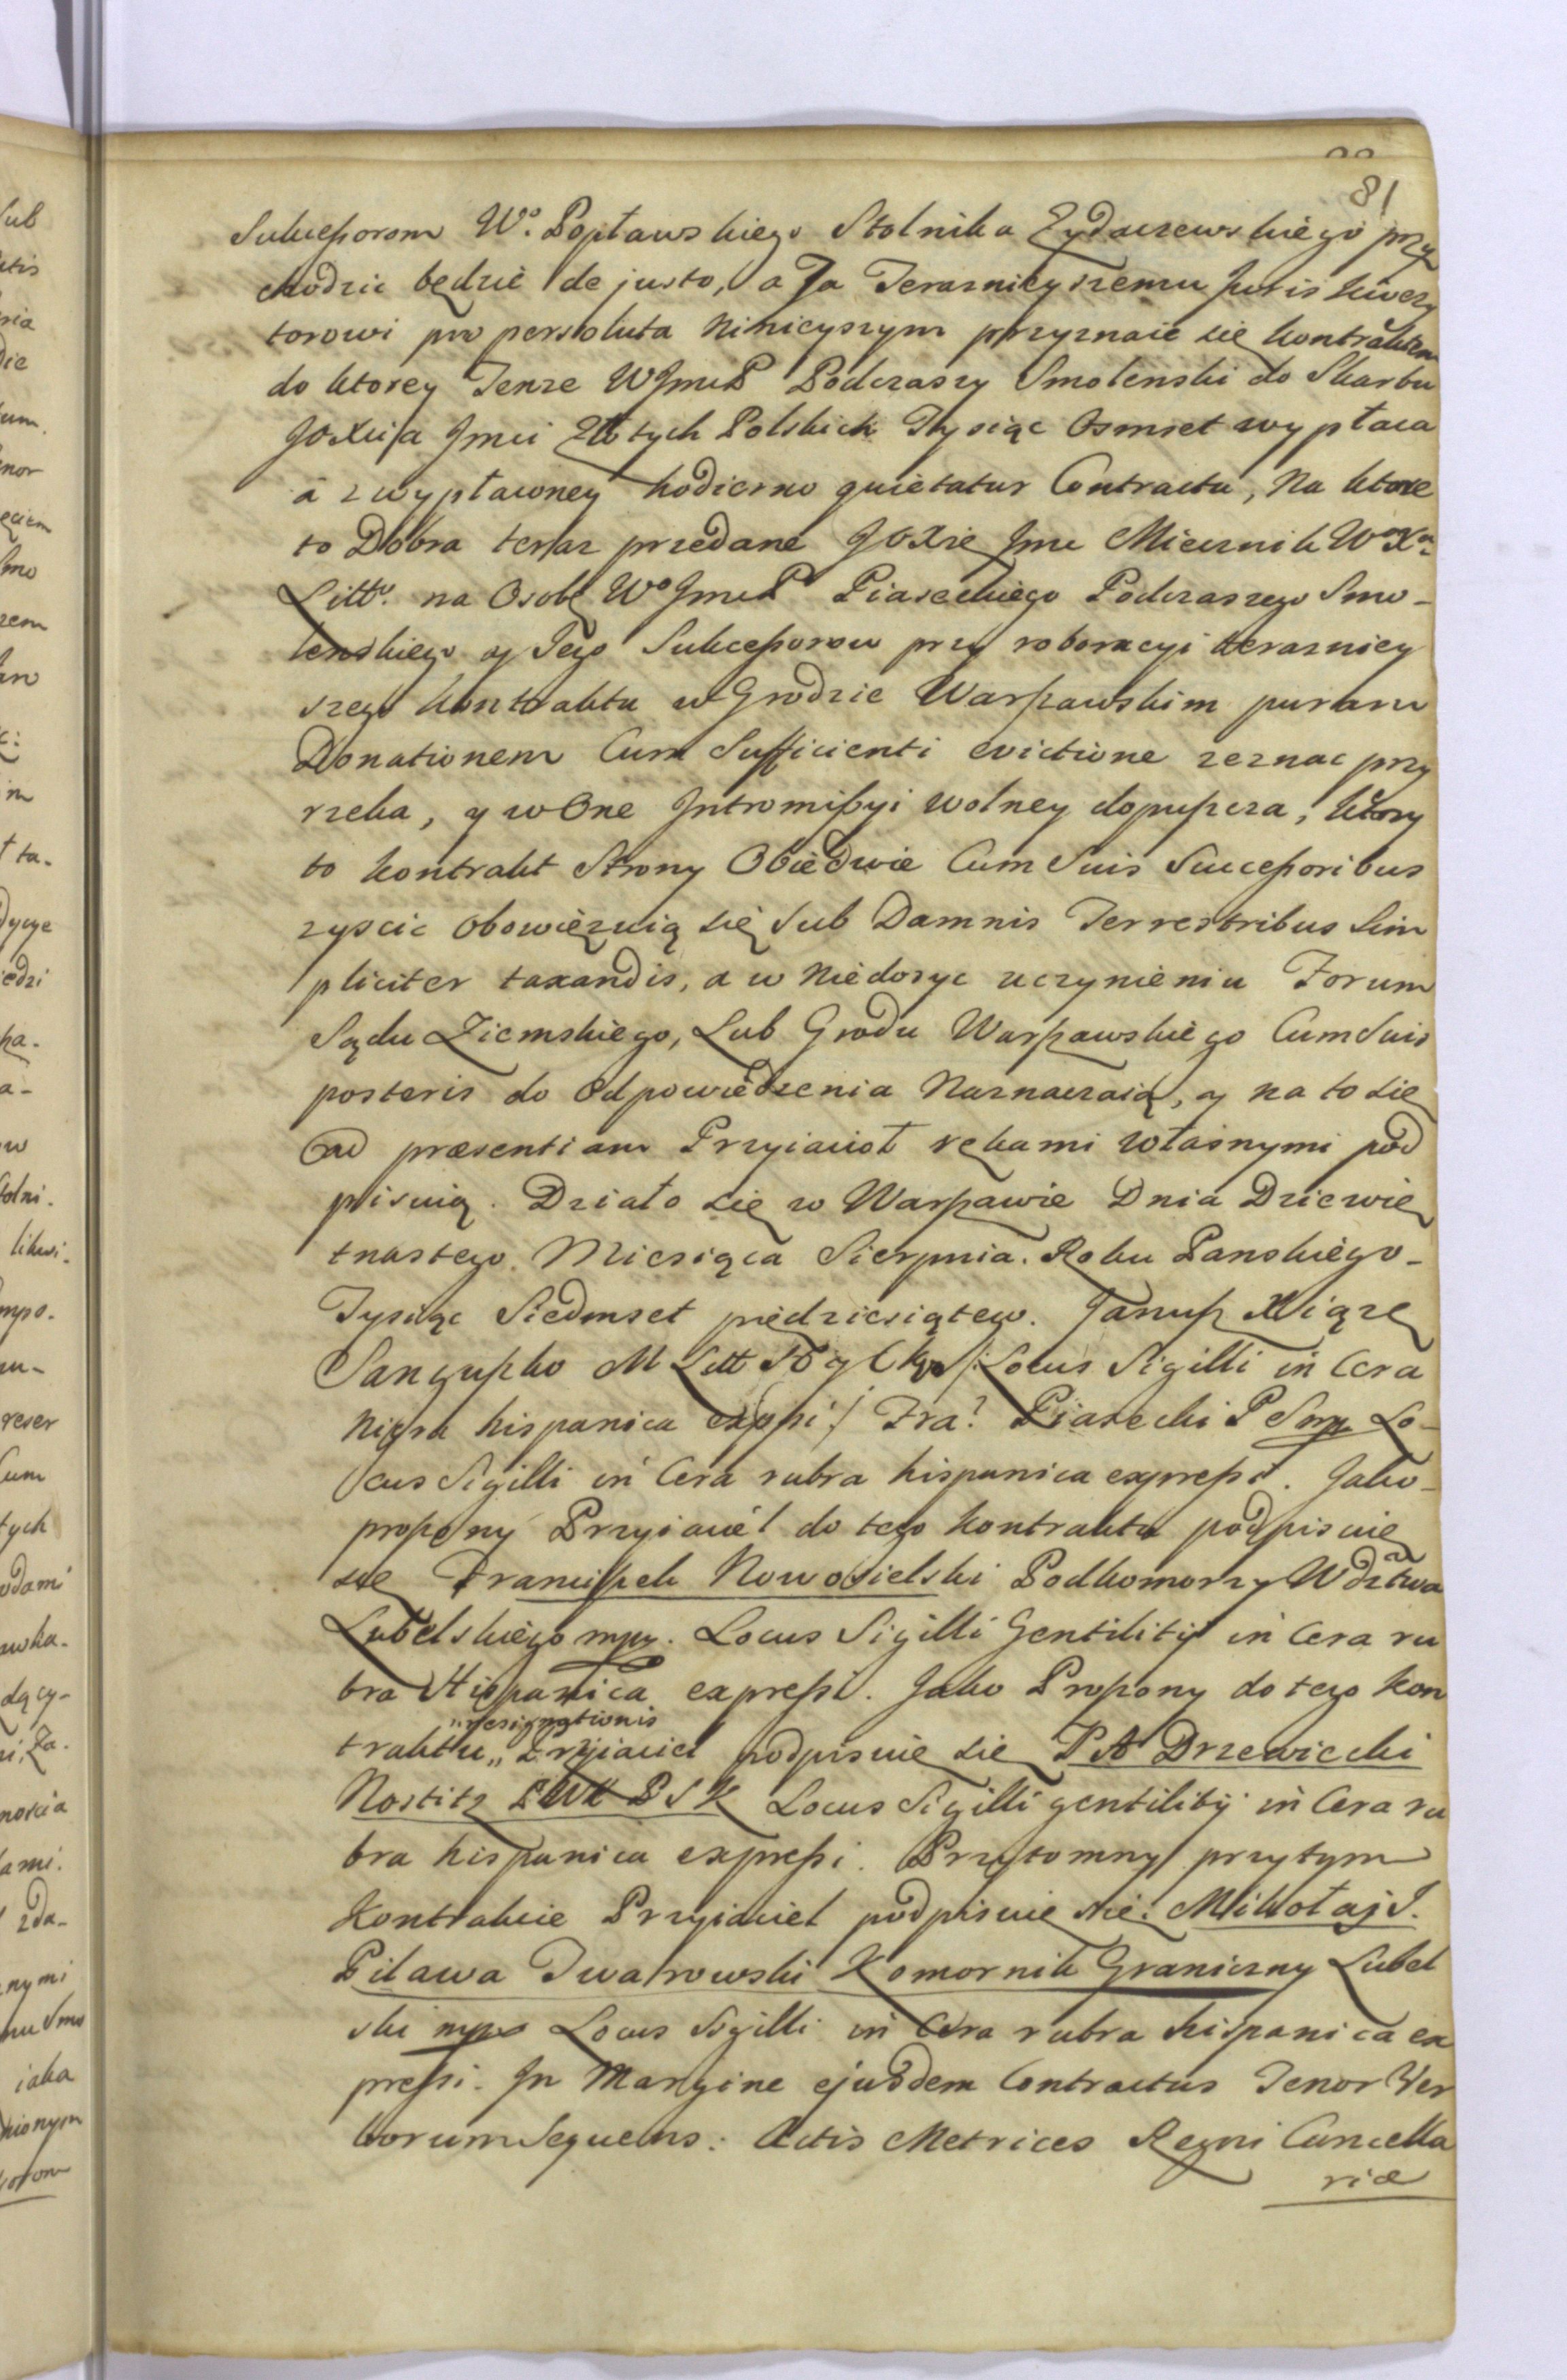 81
Sukceßorom Wº. Popławskiego Stolnika Zydaczewskiego przy
chodzic będzie de justo, a Ja Teraznieyszemu Juris
torowi pro persoluta ninieyszym przyznaie się kontraktem
do ktorey Tenze WJmćP Podczaszy Smolenski do Skarbu
JOXcia Jmci Złotych Polskich Tysiąc Osmset wypłaca
a z wypłaconey hodierno quietatur Contractu, Na ktore
to Dobra teraz przedane JOXże Jmć Miecznik WoXa
Litto. na Osobę Wº JmćP Piaseckiego Podczaszego Smo-
lenskiego y Jego Sukceßorow przy roboracyi terazniey
szego kontraktu w Grodzie Warßawskim puram
Donationem Cum Sufficienti evictione zeznac przy
rzeka, y w One Jntromißyi wolney dopußcza, ktory
to kontrakt Strony Obiedwie Cum Suis Succeßoribus
zyscic obowięzuią się Sub Damnis Terrestribus Sim
pliciter taxandis, a w niedosyc uczynieniu Forum
Sądu Ziemskiego, Lub Grodu Warßawskiego Cum Suis
posteris do Odpowiedzenia Naznaczaią, y na to się
ad præsentiam Przyiacioł rękami własnymi pod
pisuią. Działo się w Warßawie Dnia Dziewię
tnastego. Miesiąca Sierpnia. Roku Panskiego-
Tysiąc Siedmset piędziesiątego. Janusz Xiąze
Sanguszko M Litt /: Locus Sigilli in Cera
nigra hispanica expßi :/ Fra: Piasecki P Smp Lo-
cus Sigilli in Cera rubra hispanica expreßi. Jako-
proßony Przyiaciel do tego kontraktu podpisuię
się Francißek Nowosielski Podkomorzy Wdztwa
Lubelskiego mpp. Locus Sigilli Gentilitij in Cera ru
bra Hispanica expreßi. Jako Proßony do tego kon
traktu „resignationis„ Przyiaciel podpisuię się P A Drzewiecki
Nostitz PWK PSK Locus Sigilli gentilitij in Cera ru
bra hispanica expreßi. Przytomny przytym
Kontrakcie Przyiaciel podpisuię się: Mikołaj J.
Pilawa Twarowski Komornik Graniczny Lubel
ski mpp Locus Sigilli in Cera rubra hispanica ex
preßi. Jn Margine ejusdem Contractus Tenor Ver
borum Sequens: Actis Metrices Regni Cancella
riæ